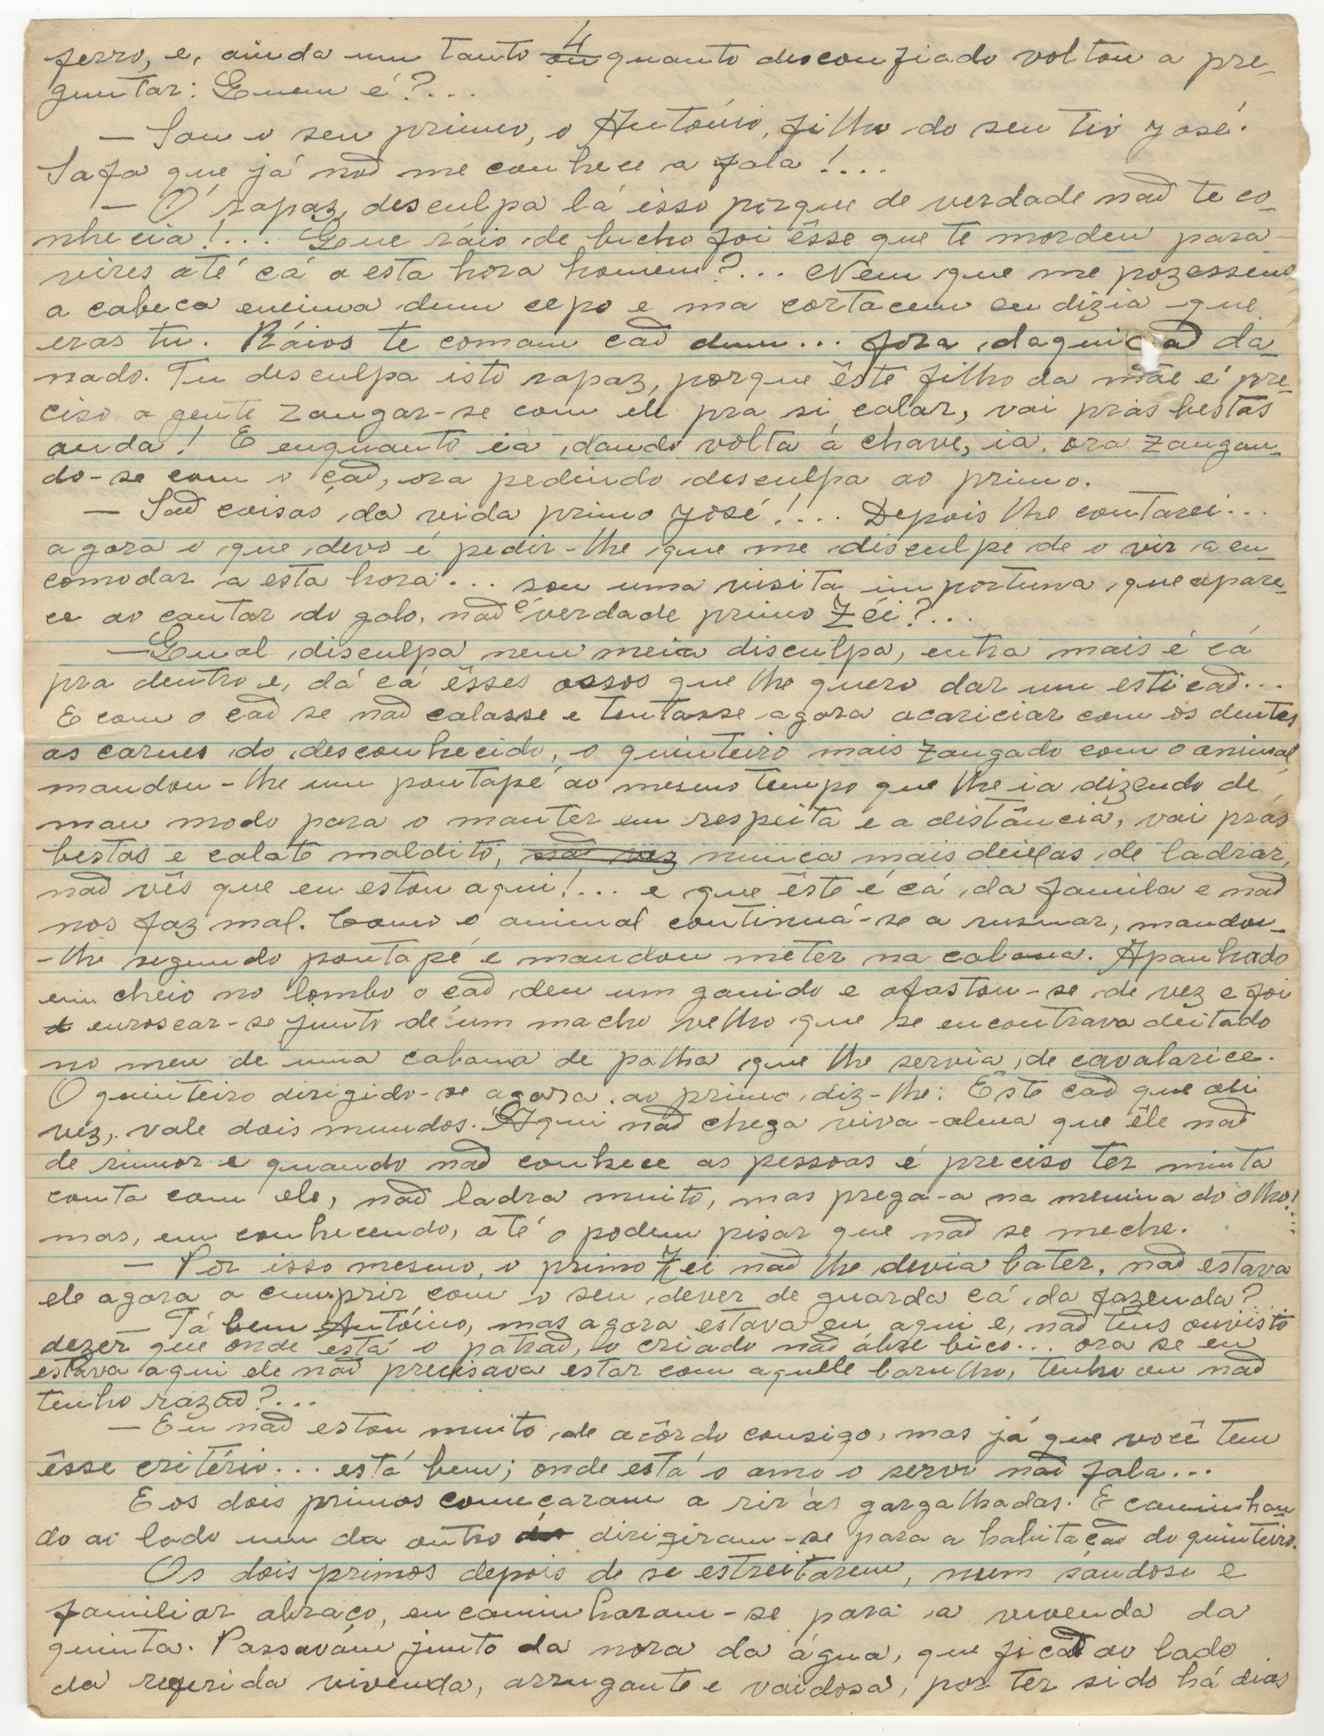 4
ferro, e, ainda um tanto ou quanto desconfiado voltou a pre-
guntar: Quem é?...
— Sou o seu primo, o António, filho do seu tio José.
Safa que já naõ me conhece a fala!...
— Ó rapaz, desculpa lá isso porque de verdade naõ te co-
nhecia!... Que ráio de bicho foi êsse que te mordeu para
vires até cá a esta hora homem?... Nem que me pozessem
a cabeca encima dum cepo e ma cortacem eu dizia que
eras tu. Ráios te comam caõ dum... fora daqui caõ da-
nado. Tu desculpa isto rapaz, porque êste filho da mãe é pre-
ciso a gente zangar-se com ele pra si calar, vai prás bestas
anda! E enquanto ia dando volta á chave, ia, ora zangan-
do-se com o caõ, ora pedindo desculpa ao primo.
— Saõ coisas da vida primo José!!... Depois lhe contarei...
agora o que devo é pedir-lhe que me disculpe de o vir aen-
comodar a esta hora... sou uma visita importuna que apare-
ce ao cantar do galo, naõ é verdade primo Zéi?...
— Qual disculpa nem meia disculpa, entra mais é cá
pra dentro e, dá cá êsses ossos que lhe quero dar um esticaõ...
E com o caõ se naõ calasse e tentasse agora acariciar com os dentes
as carnes do desconhecido, o quinteiro mais zangado com o animal
mandou-lhe um pontapé ao mesmo tempo que lhe ia dizendo de
mau modo para o manter em respeita e a distância, vai prás
bestas e calate maldito, naõ vez nunca mais deixas de ladrar,
naõ vês que eu estou aqui!... e que êste é cá da familia e naõ
nos faz mal. Como o animal continuá-se a rusnar, mandou-
-lhe segundo pontapé e mandou meter na cabana. Apanhado
em cheio no lombo o caõ deu um ganido e afastou-se de vez e foi
enroscar-se junto de um macho velho que se encontrava deitado
no meu de uma cabana de palha que lhe servia de cavalarice.
O quinteiro dirigido-se agora ao primo diz-lhe: Este caõ que ali
vêz, vale dois mundos. Aqui naõ chega viva-alma que êle naõ
de rumor e quando naõ conhece as pessoas é preciso ter muita
conta com ele, naõ ladra muito, mas prega-a na menina do olho!...
mas, em conhecendo, até o podem pisar que naõ se meche.
— Pôr isso mesmo, o primo Zei naõ lhe devia bater, naõ estava
ele agora a cumprir com o seu dever de guarda cá da fazenda?
— Tá bem António, mas agora estava eu aqui e, naõ tens ouvisto
dezer que onde está o patraõ, o criado naõ ábre bico... ora se eu
estava aqui ele naõ precisava estar com aquele barulho, tenho ou naõ
tenho razaõ?...
— Eu naõ estou muito de acôrdo consigo, mas já que você tem
êsse critério... está bem; onde está o amo o servo naõ fala...
E os dois primos comecaram a rir ás gargalhadas. E caminhan-
do ao lado um da outro dirigiram-se para a habitaçaõ do quinteiro.
Os dois primos depois de se estreitarem, num saudoso e
familiar abraço, encaminharam-se para a vivenda da
quinta. Passavám junto da nora da água, que fica ao lado
da referida vivenda, arrugante e vaidosa, por ter sido há dias